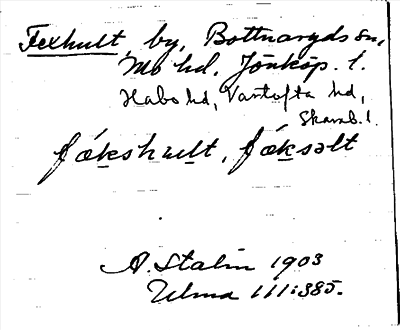 Fexhult, by, Bottnaryds sn,
Mo hd. Jönköp. l.
Habo hd, Vartofta hd,
Skarab. l.
fǽkshult, fǽksəlt
A. Stalin 1903
Ulma 111:385.